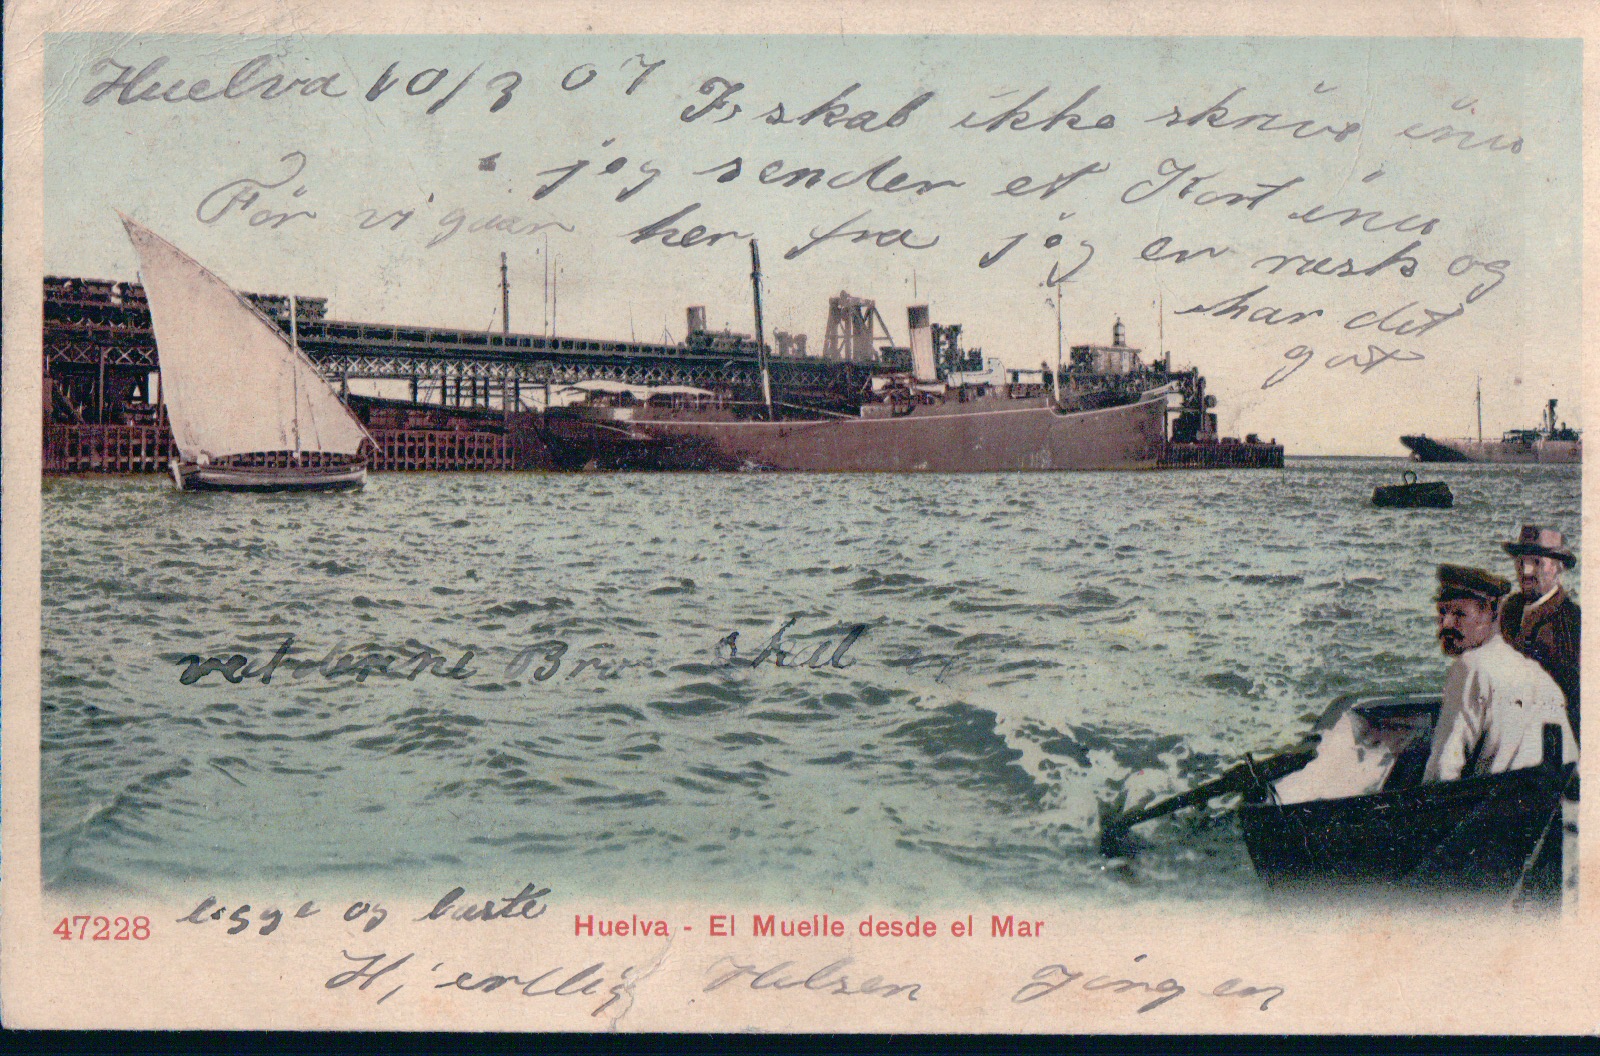 Huelva 10/3 07
skal ikke skrive inu
jeg sender et Kort inu
Før vi gaar her fra jeg er rask og
har det
got
ved denne Bro skal vi
legge og laste
Hjerllig Helsen Jörgen
47228
Huelva - El Muelle desde el Mar